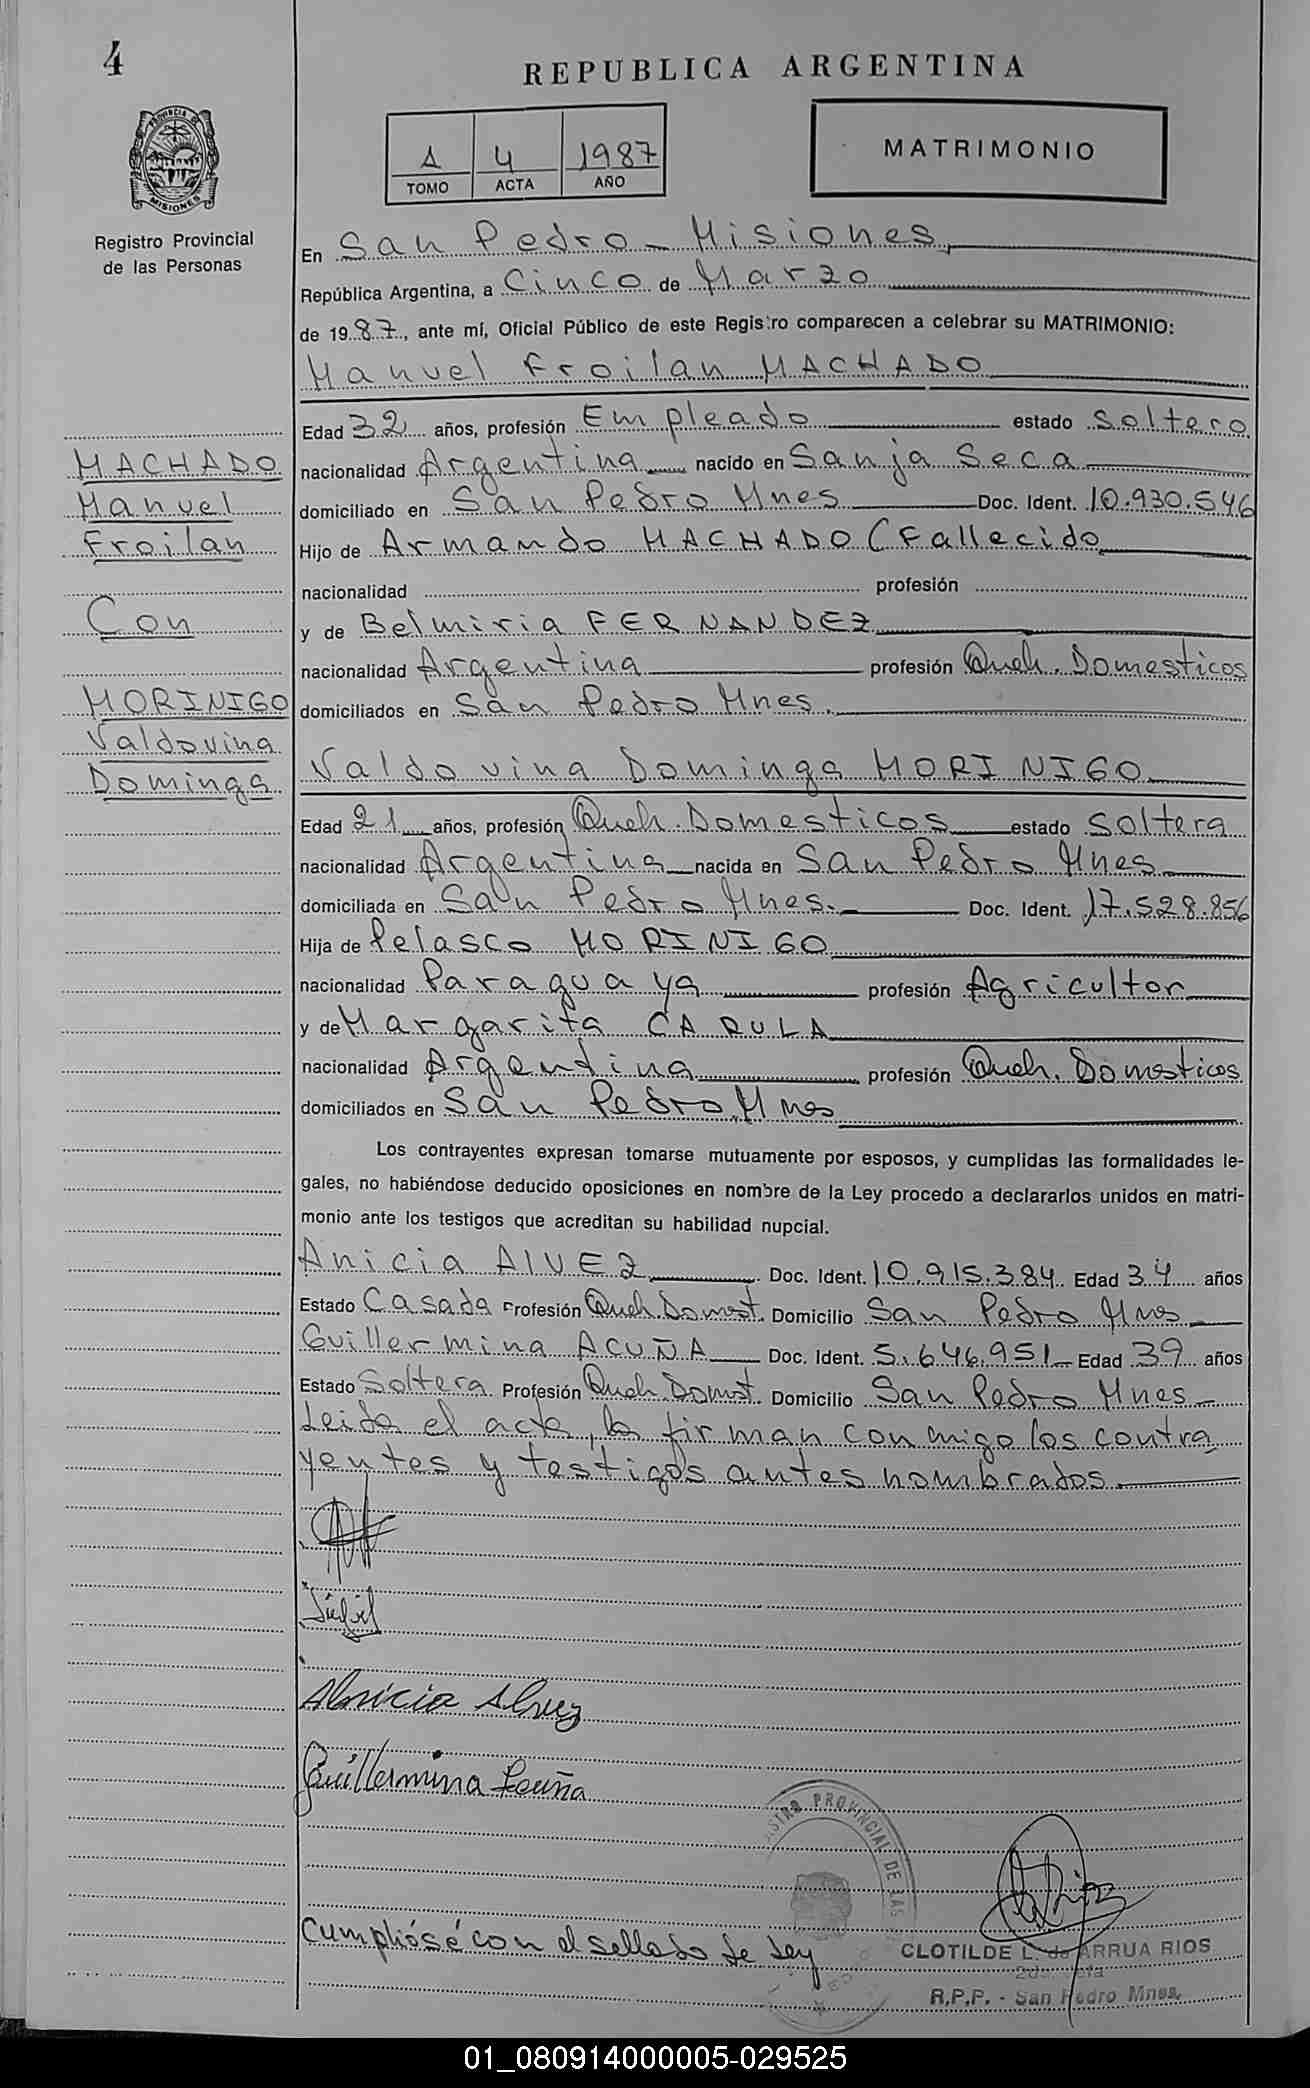 4
REPUBLICA ARGENTINA
PROVINCIA DE
MISIONES
Registro Provincial
de las Personas
A 4 1987
TOMO ACTA AÑO
MATRIMONIO
En San Pedro - Misiones
República Argentina, a Cinco de Marzo
de 1987, ante mí, Oficial Público de este Registro comparecen a celebrar su MATRIMONIO:
Manuel Froilan MACHADO
Edad 32 años, profesión Empleado estado Soltero
nacionalidad Argentina nacido en Sanja Seca
domiciliado en San Pedro Mnes Doc. Ident. 10.930.546
Hijo de Armando MACHADO (Fallecido
nacionalidad profesión
y de Belmiria FERNANDEZ
nacionalidad Argentina profesión Queh. Domesticos
domiciliados en San Pedro Mnes.
MACHADO
Manuel
Froilan
Con
MORINIGO
Valdovina
Dominga
Valdovina Dominga MORINIGO
Edad 21 años, profesión Queh. Domesticos estado Soltera
nacionalidad Argentina nacida en San Pedro Mnes
domiciliada en San Pedro Mnes. Doc. Ident. 17.528.856
Hija de Pelasco MORINIGO
nacionalidad Paraguaya profesión Agricultor
y de Margarita CARULA
nacionalidad Argentina profesión Queh. Domesticos
domiciliados en San Pedro Mnes
Los contrayentes expresan tomarse mutuamente por esposos, y cumplidas las formalidades le-
gales, no habiéndose deducido oposiciones en nombre de la Ley procedo a declararlos unidos en matri-
monio ante los testigos que acreditan su habilidad nupcial.
Anicia AlVEZ Doc. Ident. 10.915.384 Edad 34 años
Estado Casada Profesión Queh Domest. Domicilio San Pedro Mnes
Guillermina ACUÑA Doc. Ident. 5.646.951 Edad 39 años
Estado Soltera Profesión Queh. Domst. Domicilio San Pedro Mnes
Leida el acta, la firman conmigo los contra
yentes y testigos antes nombrados
Anicia Alvez
Guillermina Acuña
PROVINCIAL DE LAS
Cumpliósé con el sellado de Ley
CLOTILDE L. de ARRUA RIOS
R.P.P. - San Pedro Mnes.
01_080914000005-029525